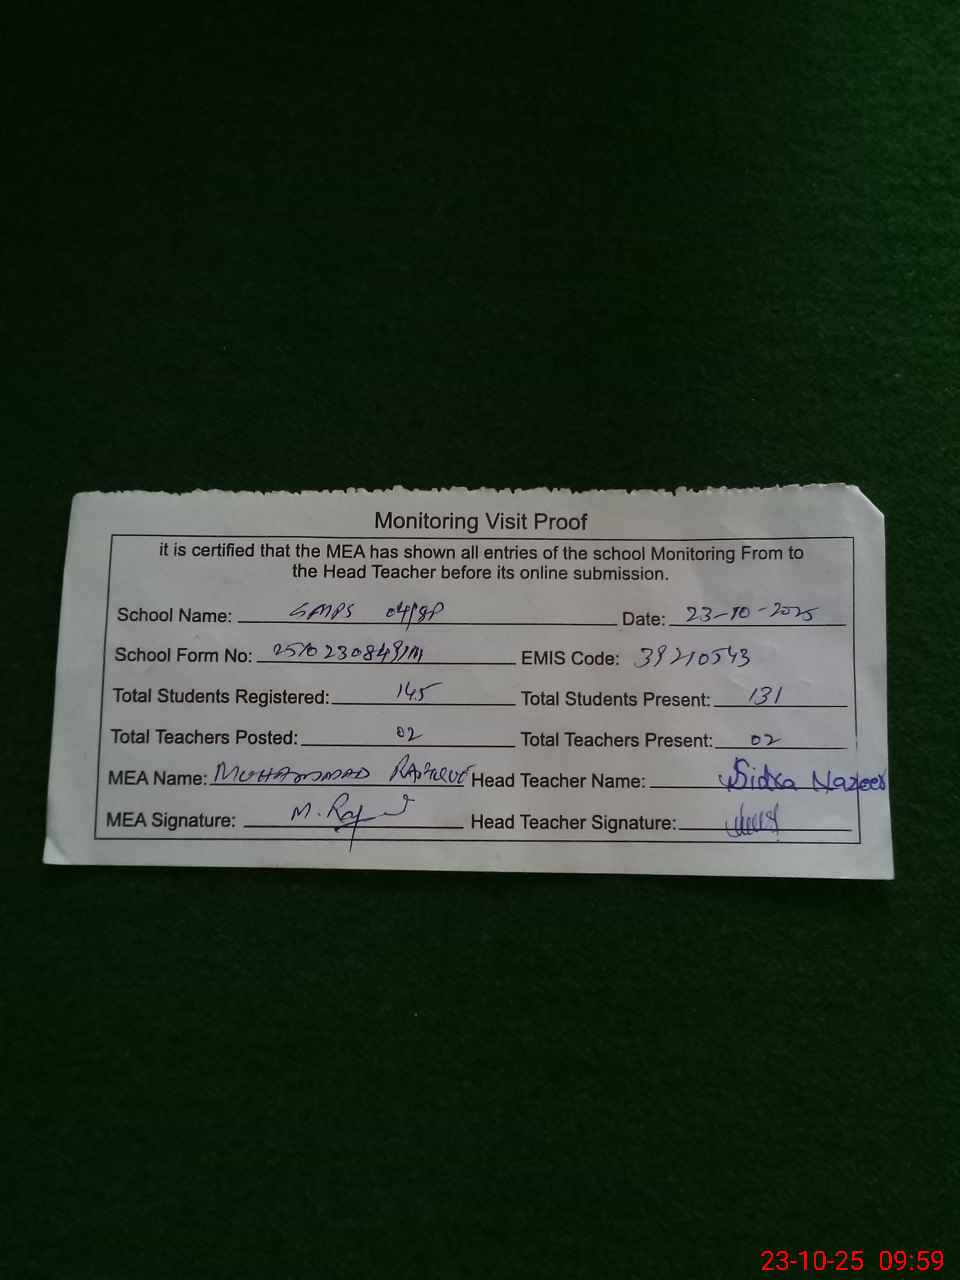 Monitoring Visit Proof
it is certified that the MEA has shown all entries of the school Monitoring From to
the Head Teacher before its online submission.
School Name: GMPS 04/8P Date: 23-10-2025
School Form No: EMIS Code: 39210543
Total Students Registered: 145 Total Students Present: 131
Total Teachers Posted: 02 Total Teachers Present: 02
MEA Name: MUHAMMAD Head Teacher Name: Sidra Nazeer
MEA Signature: M. Head Teacher Signature:
23-10-25 09:59